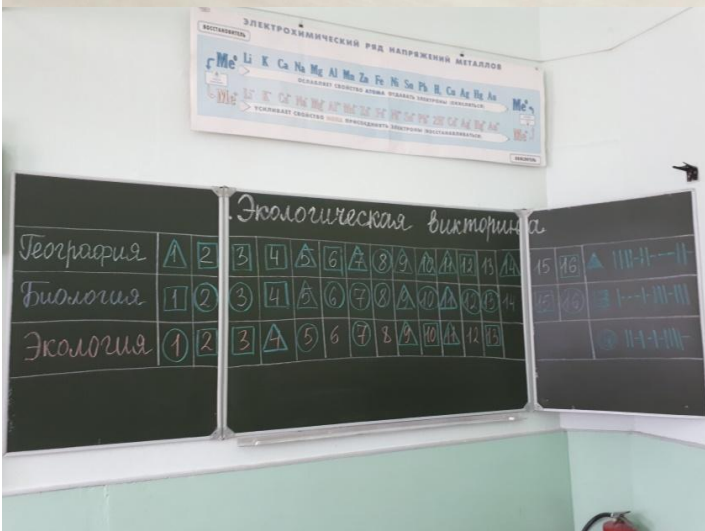 ЭЛЕКТРОХИМИЧЕСКИЙ РЯД НАПРЯЖЕНИЙ МЕТАЛЛОВ
ВОССТАНОВИТЕЛЬ
Me⁰ Li K Ca Na Mg Al Mn Zn Fe Ni Sn Pb H₂ Cu Ag Hg Au Me⁰
ОСЛАБЛЯЕТ СВОЙСТВО АТОМА ОТДАВАТЬ ЭЛЕКТРОНЫ (ОКИСЛЯТЬСЯ)
УСИЛИВАЕТ СВОЙСТВО ИОНА ПРИСОЕДИНЯТЬ ЭЛЕКТРОНЫ (ВОССТАНАВЛИВАТЬСЯ)
ОКИСЛИТЕЛЬ
Экологическая викторина
География 1 2 3 4 5 6 7 8 9 10 11 12 13 14 15 16
Биология 1 2 3 4 5 6 7 8 9 10 11 12 13 14 15 16
Экология 1 2 3 4 5 6 7 8 9 10 11 12 13